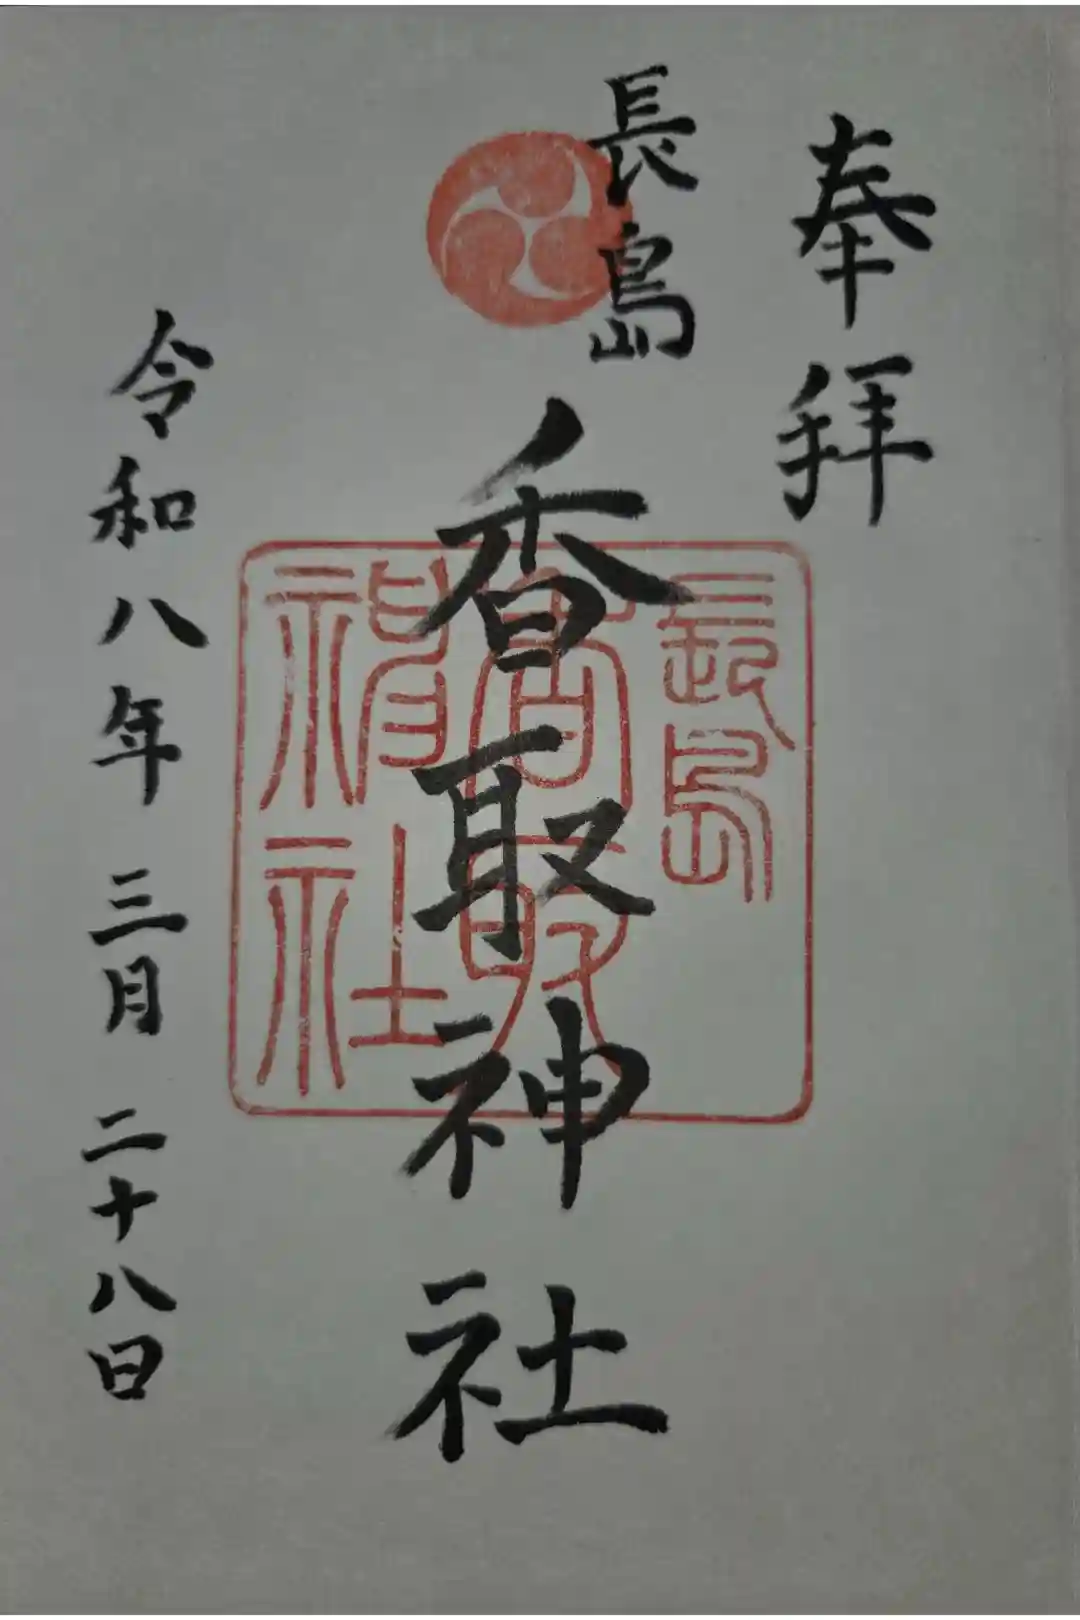 奉拝
長島
香取神社
長島
香取
神社
令和八年三月二十八日